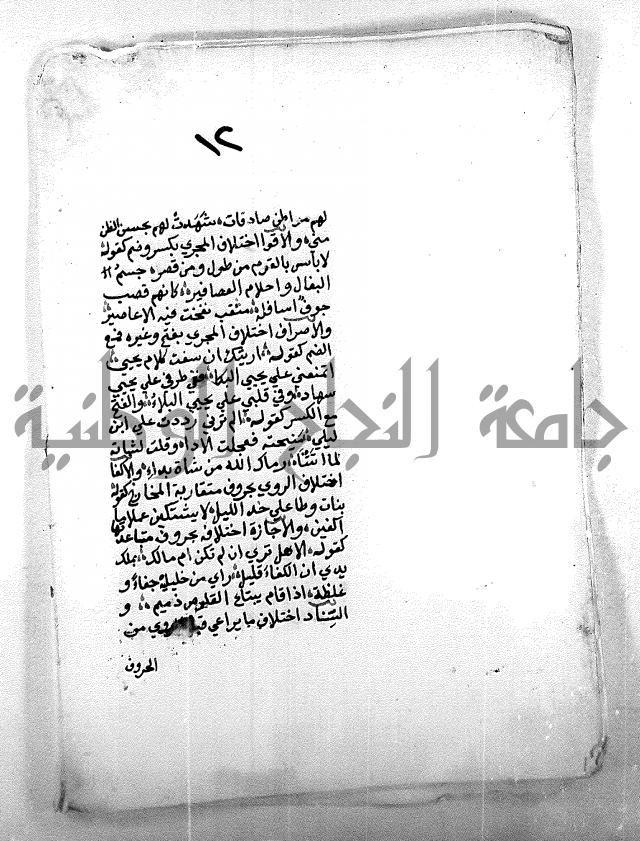 ١٢
لهم مراطني صادقات شهدت لهم بحسن الظن
مني والاقوا اختلاف المجري بكسر وضم كقوله
لا باس بالقوم من طول ومن قصر جسم ال
البغال واحلام العصافير كانهم قصب
جوف اسافله مثقب نفخت فيه الاعاصير
والاصراف اختلاف المجري بفتح وغيره فمع
الضم كقوله اريتك ان سفت كلام يحيي
اتمنعني علي يحيي البكاء ففي طرفي علي يحيي
سهاد وفي قلبي علي يحيي البلاء والفتح
مع الكسر كقوله الم ترني رددت علي ابن
ليلي منيحته فعجلت الاداء وقلت لشاته
لما اتتنا رماك الله من شاة بداء والاكفا
اختلاف الروي بحروف متقاربة المخارج كقوله
بنات وطا علي خد الليل لا يشتكين عملا ما
انقين والاجازة اختلافه بحروف متباعدتها
كقوله الا هل تري ان لم تكن ام مالك بملك
يدي ان الكفاء قليل راي من خليله جفاء و
غلظة اذا قام يبتاع القلوص ذميم و
السناد اختلاف ما يراعي قبل الروي من
الحروف
جامعة النجاح الوطنية